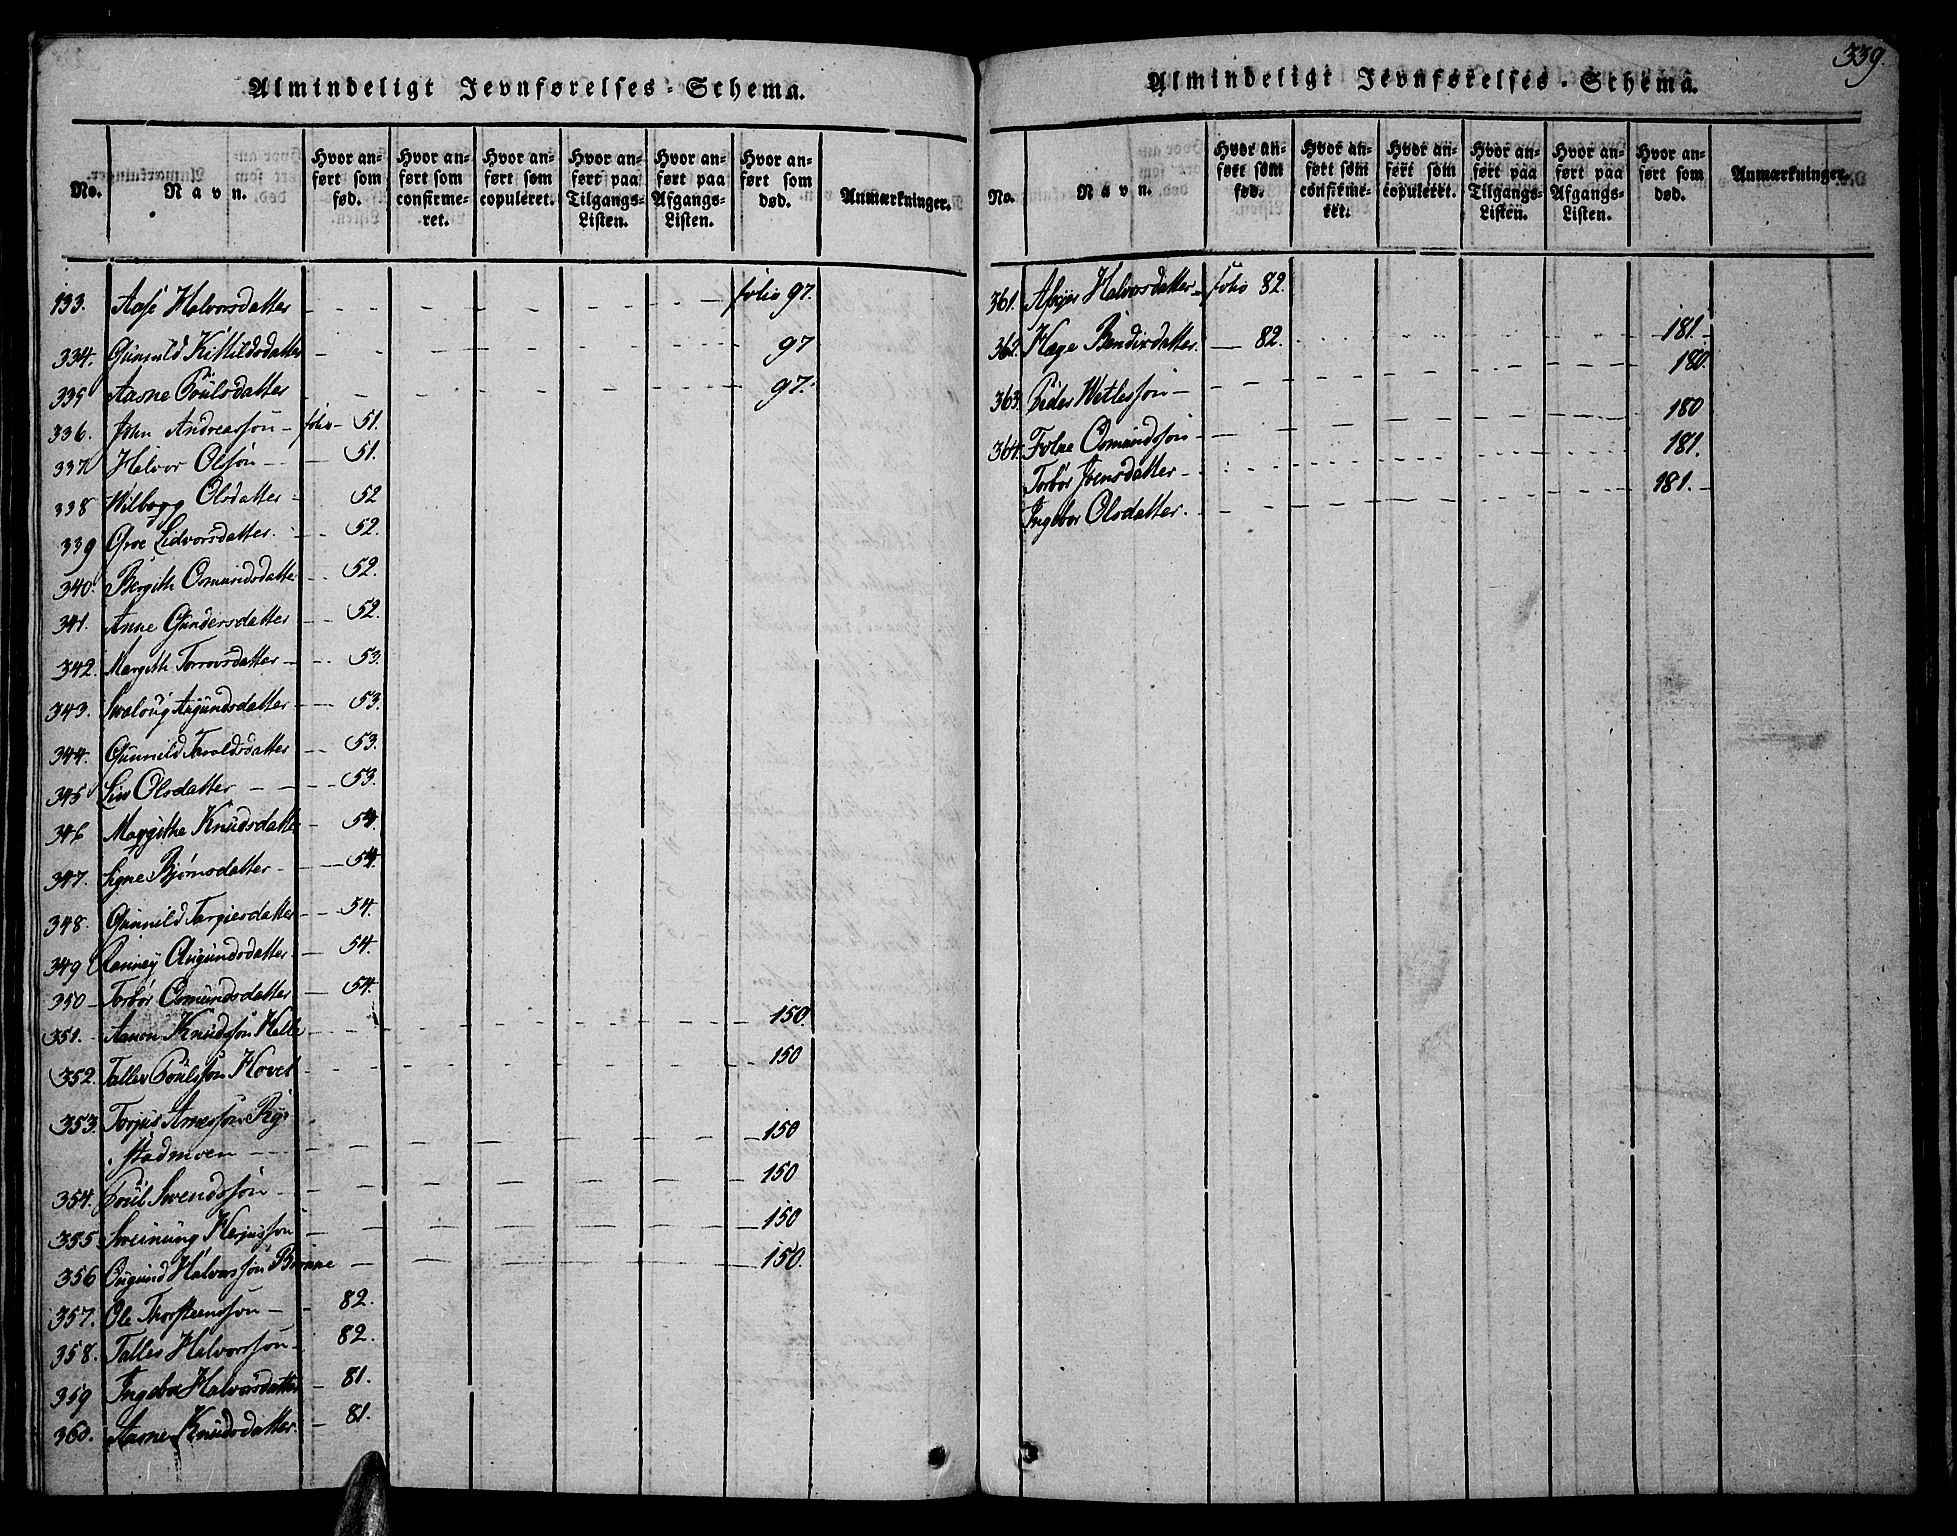 Almindeligt Jevnførelses-Schema.
No.
Navn.
Hvor anført som fød.
Hvor anført som confirmeret.
Hvor anført som copuleret.
Hvor anført paa Tilgangs-Listen.
Hvor anført paa Afgangs-Listen.
Hvor anført som død.
Anmærkninger.
133. Aase Halvorsdatter folio 97.
334. Gunnild Kittildsdatter 97
335 Aasne Poulsdatter 97.
336. John Andreassøn folio 51.
337 Halvor Olsøn 51.
338 Wilborg Olsdatter 52
339 Groe Eidvorsdatter. 52.
340. Bergith Osmundsdatter 52.
341. Anne Gundersdatter 52.
342. Margith Torrovsdatter 53.
343. Svaloug Augundsdatter 53.
344. Gunnild Tarvaldsdatter 53.
345 Liv Olsdatter 53.
346 Margithe Knudsdatter 54.
347. Signe Bjørnsdatter 54.
348. Gunnild Targiersdatter 54.
349 Ranney Augundsdatter 54.
350 Torbor Osmundsdatter 54.
351. Aanon Knudssøn Helle 150.
352. Tallev Poulssøn Hovet 150
353. Torjus Arnessøn Ryg-
stadmoen 150
354. Poul Svendssøn 150
355 Sveinung Herjussøn 150
356 Ougund Halvorssøn 150.
357. Ole Thorsteenssøn 82.
358. Tallev Halvorssøn 82.
359 Ingebor Halvorsdatter 81.
360. Aasne Knudsdatter. 81.
339.
Almindeligt Jevnførelses-Schema.
No.
Navn.
Hvor anført som fød.
Hvor anført som confirmeret.
Hvor anført som copuleret.
Hvor anført paa Tilgangs-Listen.
Hvor anført paa Afgangs-Listen.
Hvor anført som død.
Anmærkninger.
361. Asbjør Halvorsdatter folio 82.
362. Hæge Bendixdatter. 82. 181.
363. Peder Wetlessøn 180.
364. Folne Osmundssøn 180
Torbor Joensdatter 181.
Ingebor Olsdatter. 181.